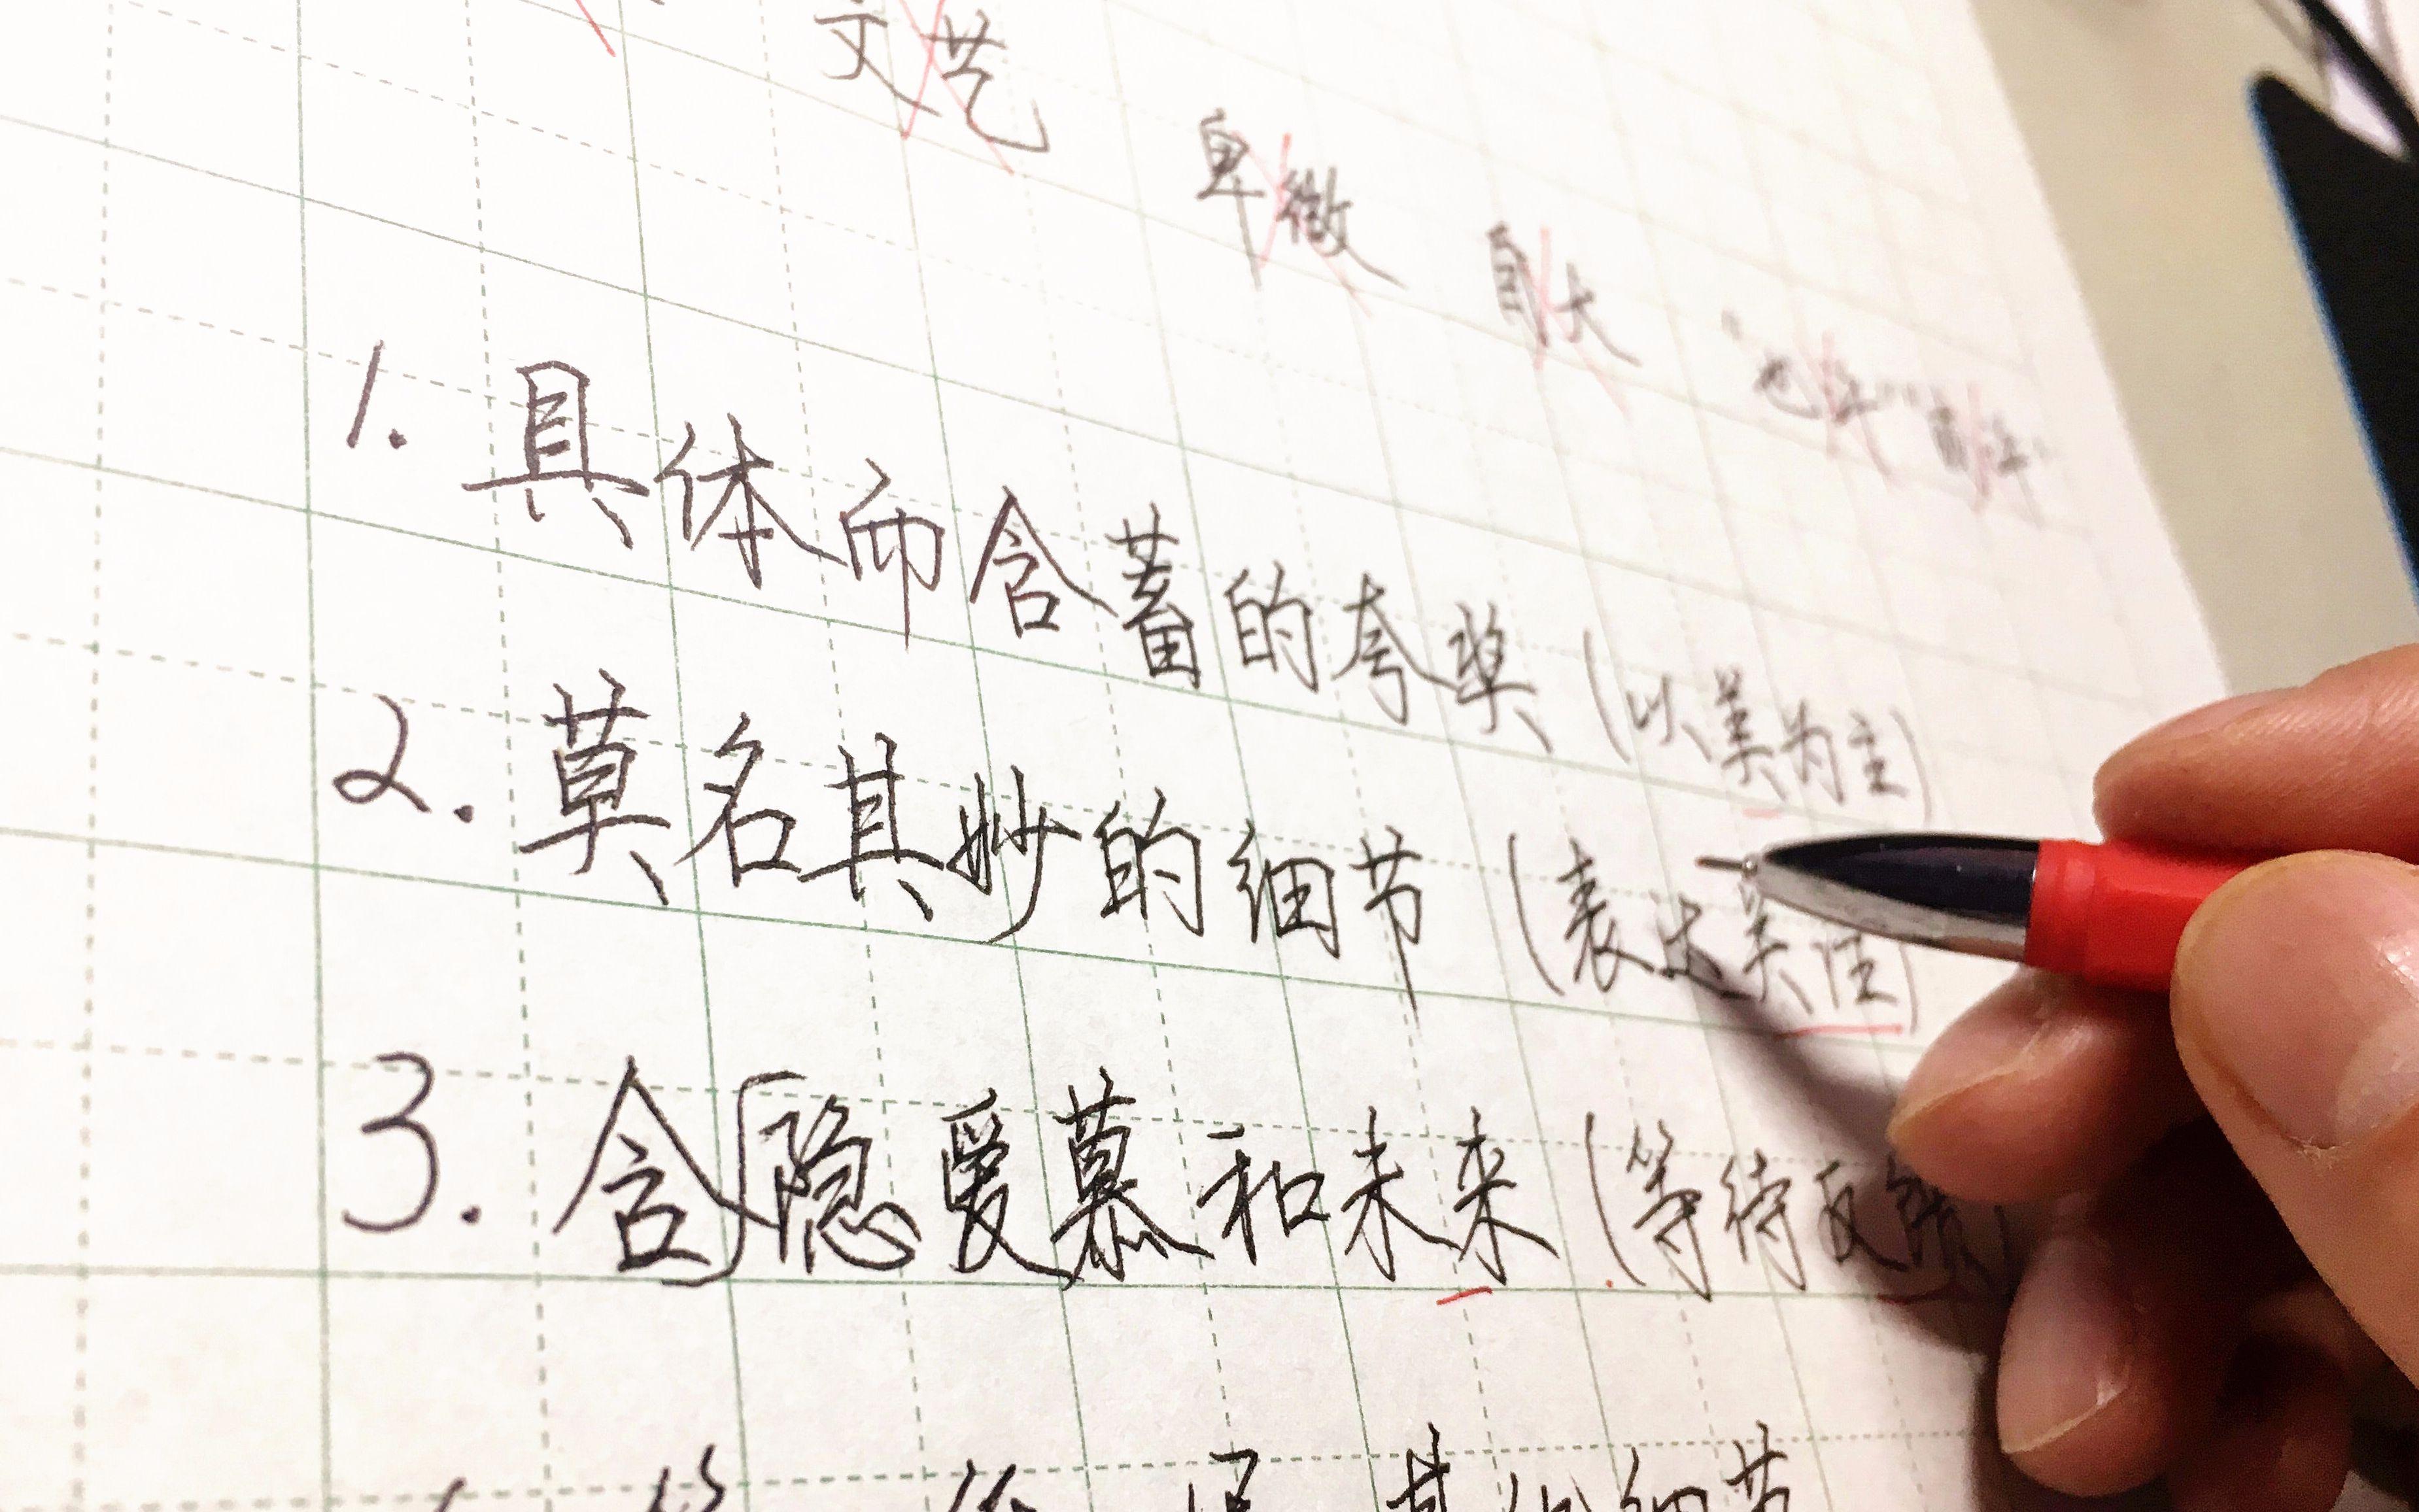 文艺 卑微 自大 "也许" "或许"
1. 具体而含蓄的夸奖 (以美为主)
2. 莫名其妙的细节 (表达关注)
3. 含隐爱慕和未来 (等待反馈)
其他细节